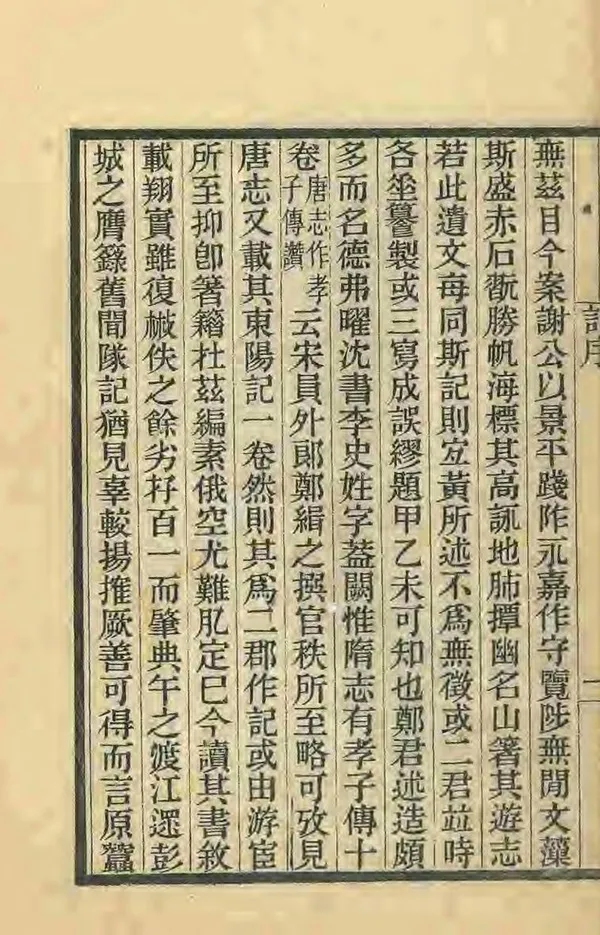 記序
一
無茲目今案謝公以景平踐阼永嘉作守覽陟無閒文藻
斯盛赤石旣勝帆海標其高詠地肺撢幽名山箸其遊志
若此遺文每同斯記則宐黃所述不爲無徵或二君竝時
各㘴籑製或三寫成誤繆題甲乙未可知也鄭君述造頗
多而名德弗曜沈書李史姓字葢闕惟隋志有孝子傳十
卷唐志作孝子傳讚云宋員外郞鄭緝之撰官秩所至略可攷見
唐志又載其東陽記一卷然則其爲二郡作記或由游宦
所至抑卽箸籍杜茲編素俄空尤難肊定巳今讀其書敘
載翔實雖復櫢佚之餘劣存百一而肇典午之渡江迄彭
城之膺籙舊聞隊記猶見辜較揚搉厥善可得而言原蠶